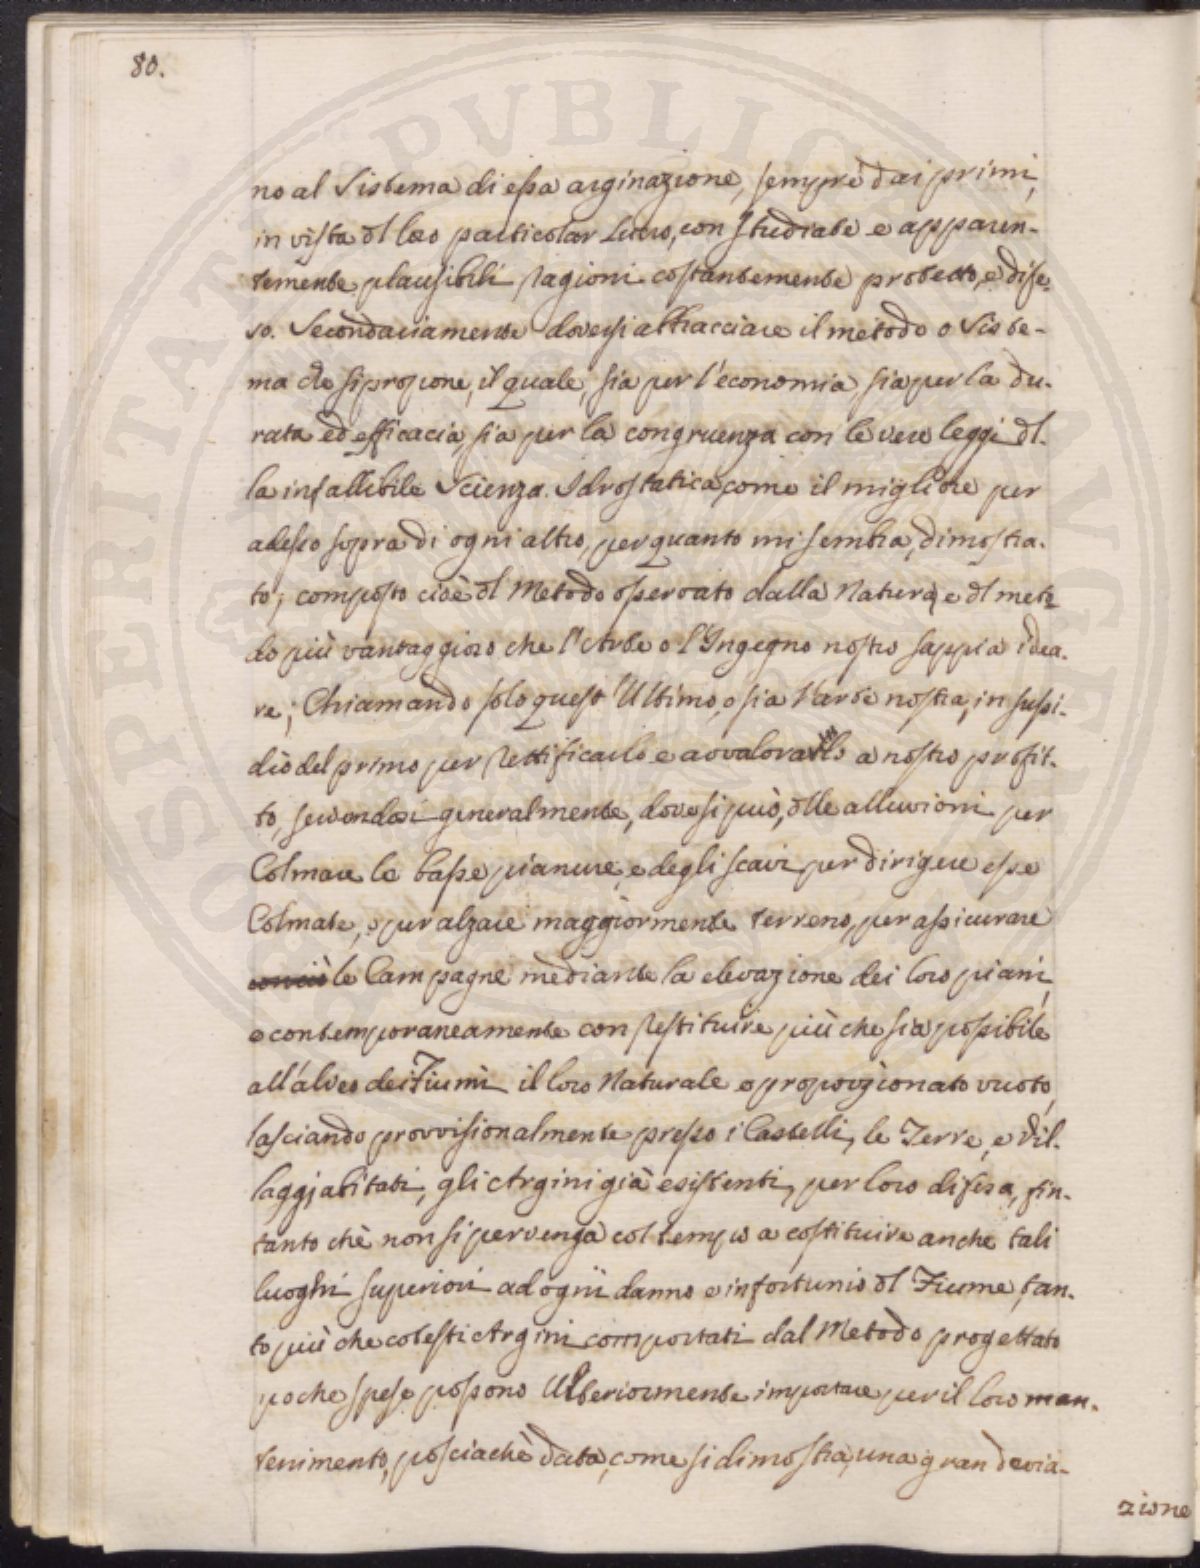 80.
no al Sistema di essa arginazione, sempre dai primi,
in vista dl loro particolar Lucro, con studiate e apparen-
temente plausibili ragioni costantemente protetto, e dife-
so. Secondariamente doversi abbracciare il metodo o Siste-
ma che si propone, il quale, sia per l'economia, sia per la du-
rata ed efficacia, sia per la congruenza con le vere leggi dl-
la infallibile Scienza Idrostatica, come il migliore per
adesso sopra di ogni altro, per quanto mi sembra, dimostra-
to; composto cioè dl Metodo osservato dalla Natura, e dl meto-
do più vantaggioso che l'Arte o l'Ingegno nostro sappia idea-
re; Chiamando solo quest'Ultimo, o sia l'arte nostra, in sussi-
dio del primo per rettificarlo e avvalorarlo a nostro profit-
to, servendosi generalmente, dove si può, dlle alluvioni per
Colmare le basse pianure, e degli scavi per dirigere esse
Colmate, o per alzare maggiormente terreno, per assicurare
le Campagne mediante la elevazione dei loro piani,
e contemporaneamente con restituire più che sia possibile
all'alveo dei Fiumi il loro Naturale e proporzionato vuoto,
lasciando provvisionalmente presso i Castelli, le Terre, e Vil-
laggj abitati, gli Argini già esistenti, per loro difesa, fin-
tanto chè non si pervenga col tempo a costituire anche tali
luoghi superiori ad ogni danno e infortunio dl Fiume, tan-
to più che cotesti Argini comportati dal Metodo progettato
poche spese possono Ulteriormente importare per il loro man-
tenimento, posciachè data, come si dimostra, una gran devia-
zione